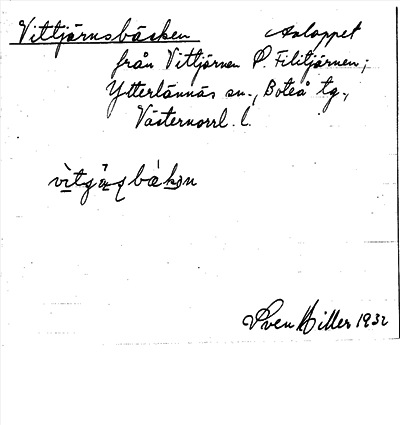 Vittjärnsbäcken Avloppet
från Vittjärnen P. Filitjärnen;
Ytterlännäs sn., Boteå tg.,
Västernorrl. l.
Sven Hiller 1932